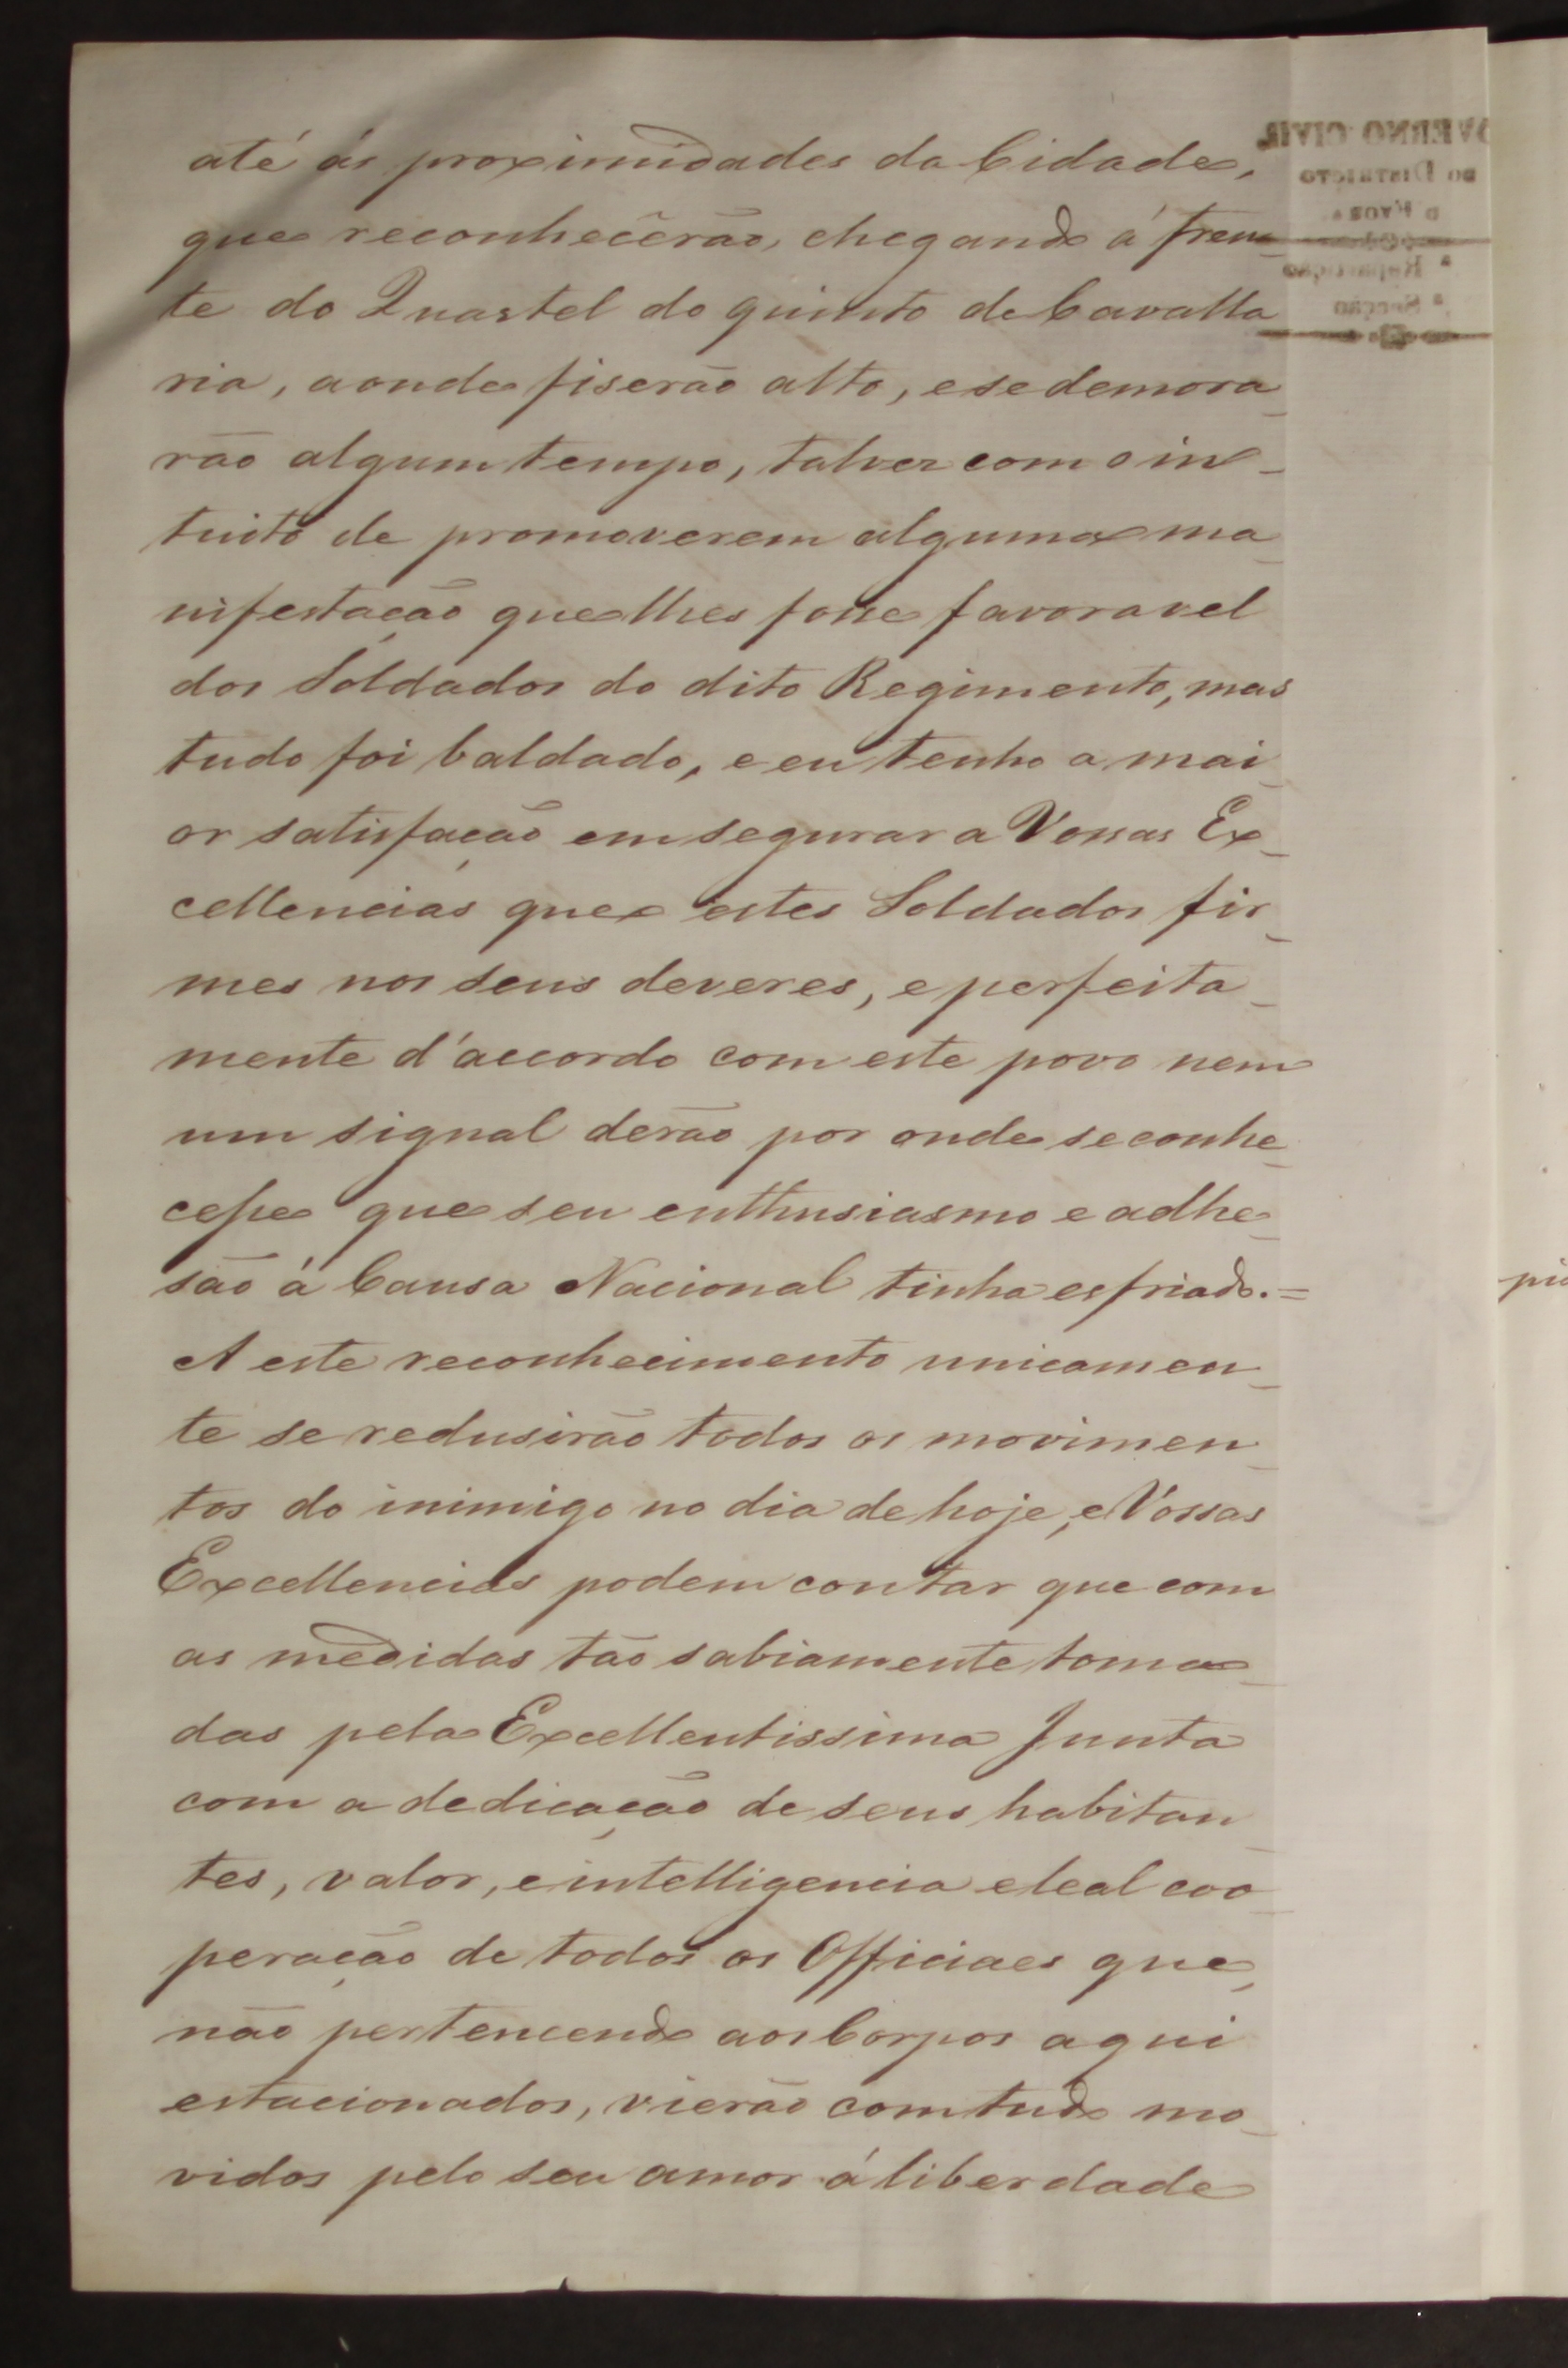 até ás proximidades da Cidade,
que reconhecêrão, chegando á fren-
te do Quartel do quinto de Cavalla
ria, aonde fiserão alto, e se demora-
rão algum tempo, talvez com o in-
tuito de promoverem alguma ma-
nifestação que lhes fosse favoravel
dos Soldados do dito Regimento, mas
tudo foi baldado, e eu tenho a mai-
or satisfação em segurar a Vossas Ex-
cellencias que estes Soldados fir-
mes nos seus deveres, e perfeita-
mente d'accordo com este povo nem
um signal derão por onde se conhe-
cesse que seu enthusiasmo e adhe-
são á Causa Nacional tinha esfriado.=
A este reconhecimento unicamen-
te se redusirão todos os movimen-
tos do inimigo no dia de hoje, e Vossas
Excellencias podem contar que com
as medidas tão sabiamente toma-
das pela Excellentissima Junta
com a dedicação de seus habitan-
tes, valor, e intelligencia e leal coo-
peração de todos os Officiaes que,
não pertencendo aos Corpos aqui
estacionados, vierão comtudo mo-
vidos pelo seu amor á liberdade
VERNO CIVIL
DO DISTRICTO
ª Repartição
ª Secção